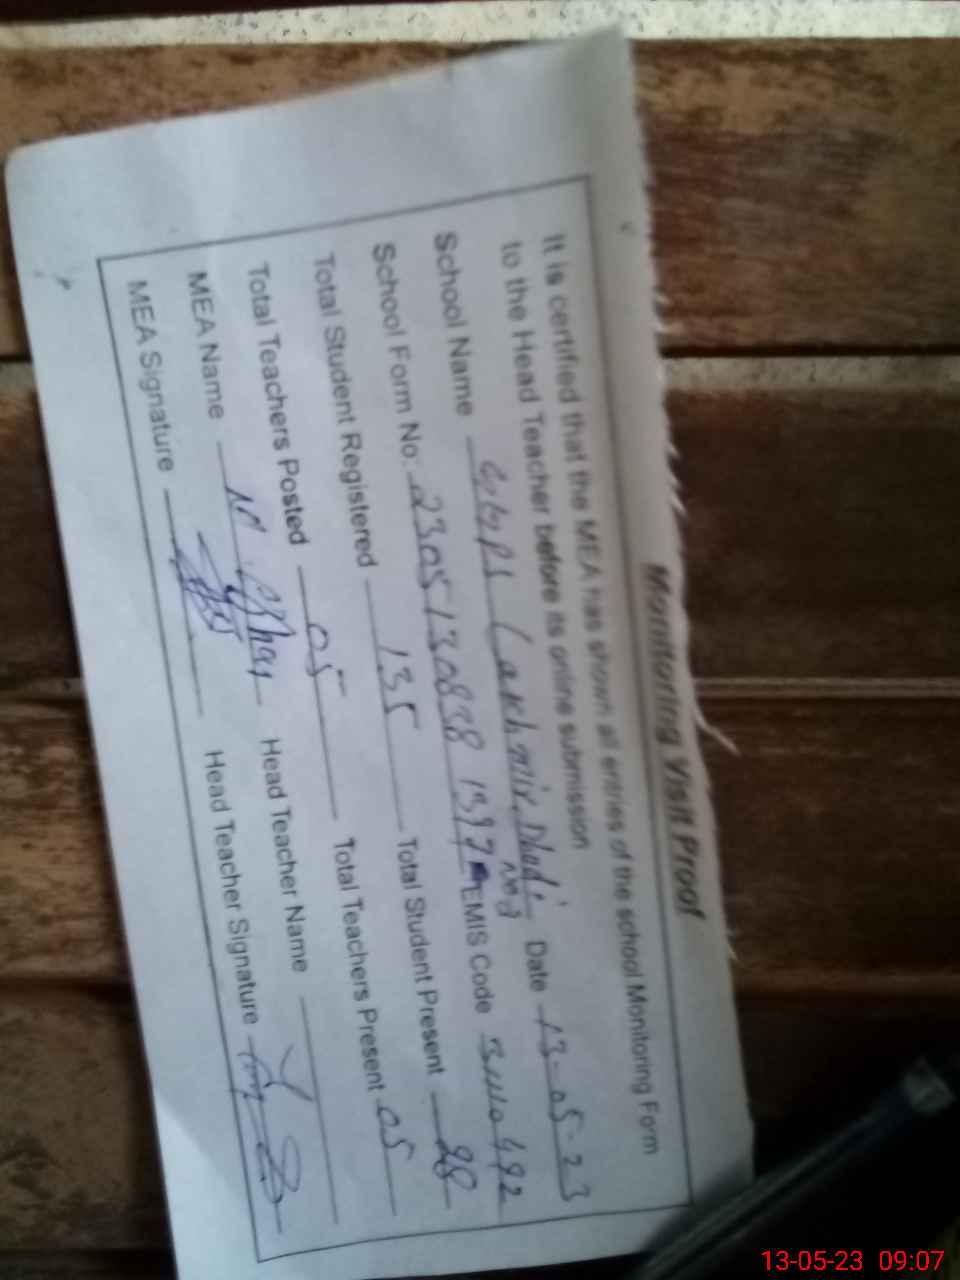 Monitoring Visit Proof
It is certified that the MEA has shown all entries of the school Monitoring Form
to the Head Teacher before its online submission
School Name GGPS Lakhmir Dhad: No 2 Date 13-05-23
School Form No: 230513083813 EMIS Code
Total Student Registered 135 Total Student Present 98
Total Teachers Posted 05 Total Teachers Present 05
MEA Name Head Teacher Name
MEA Signature Head Teacher Signature
13-05-23 09:07